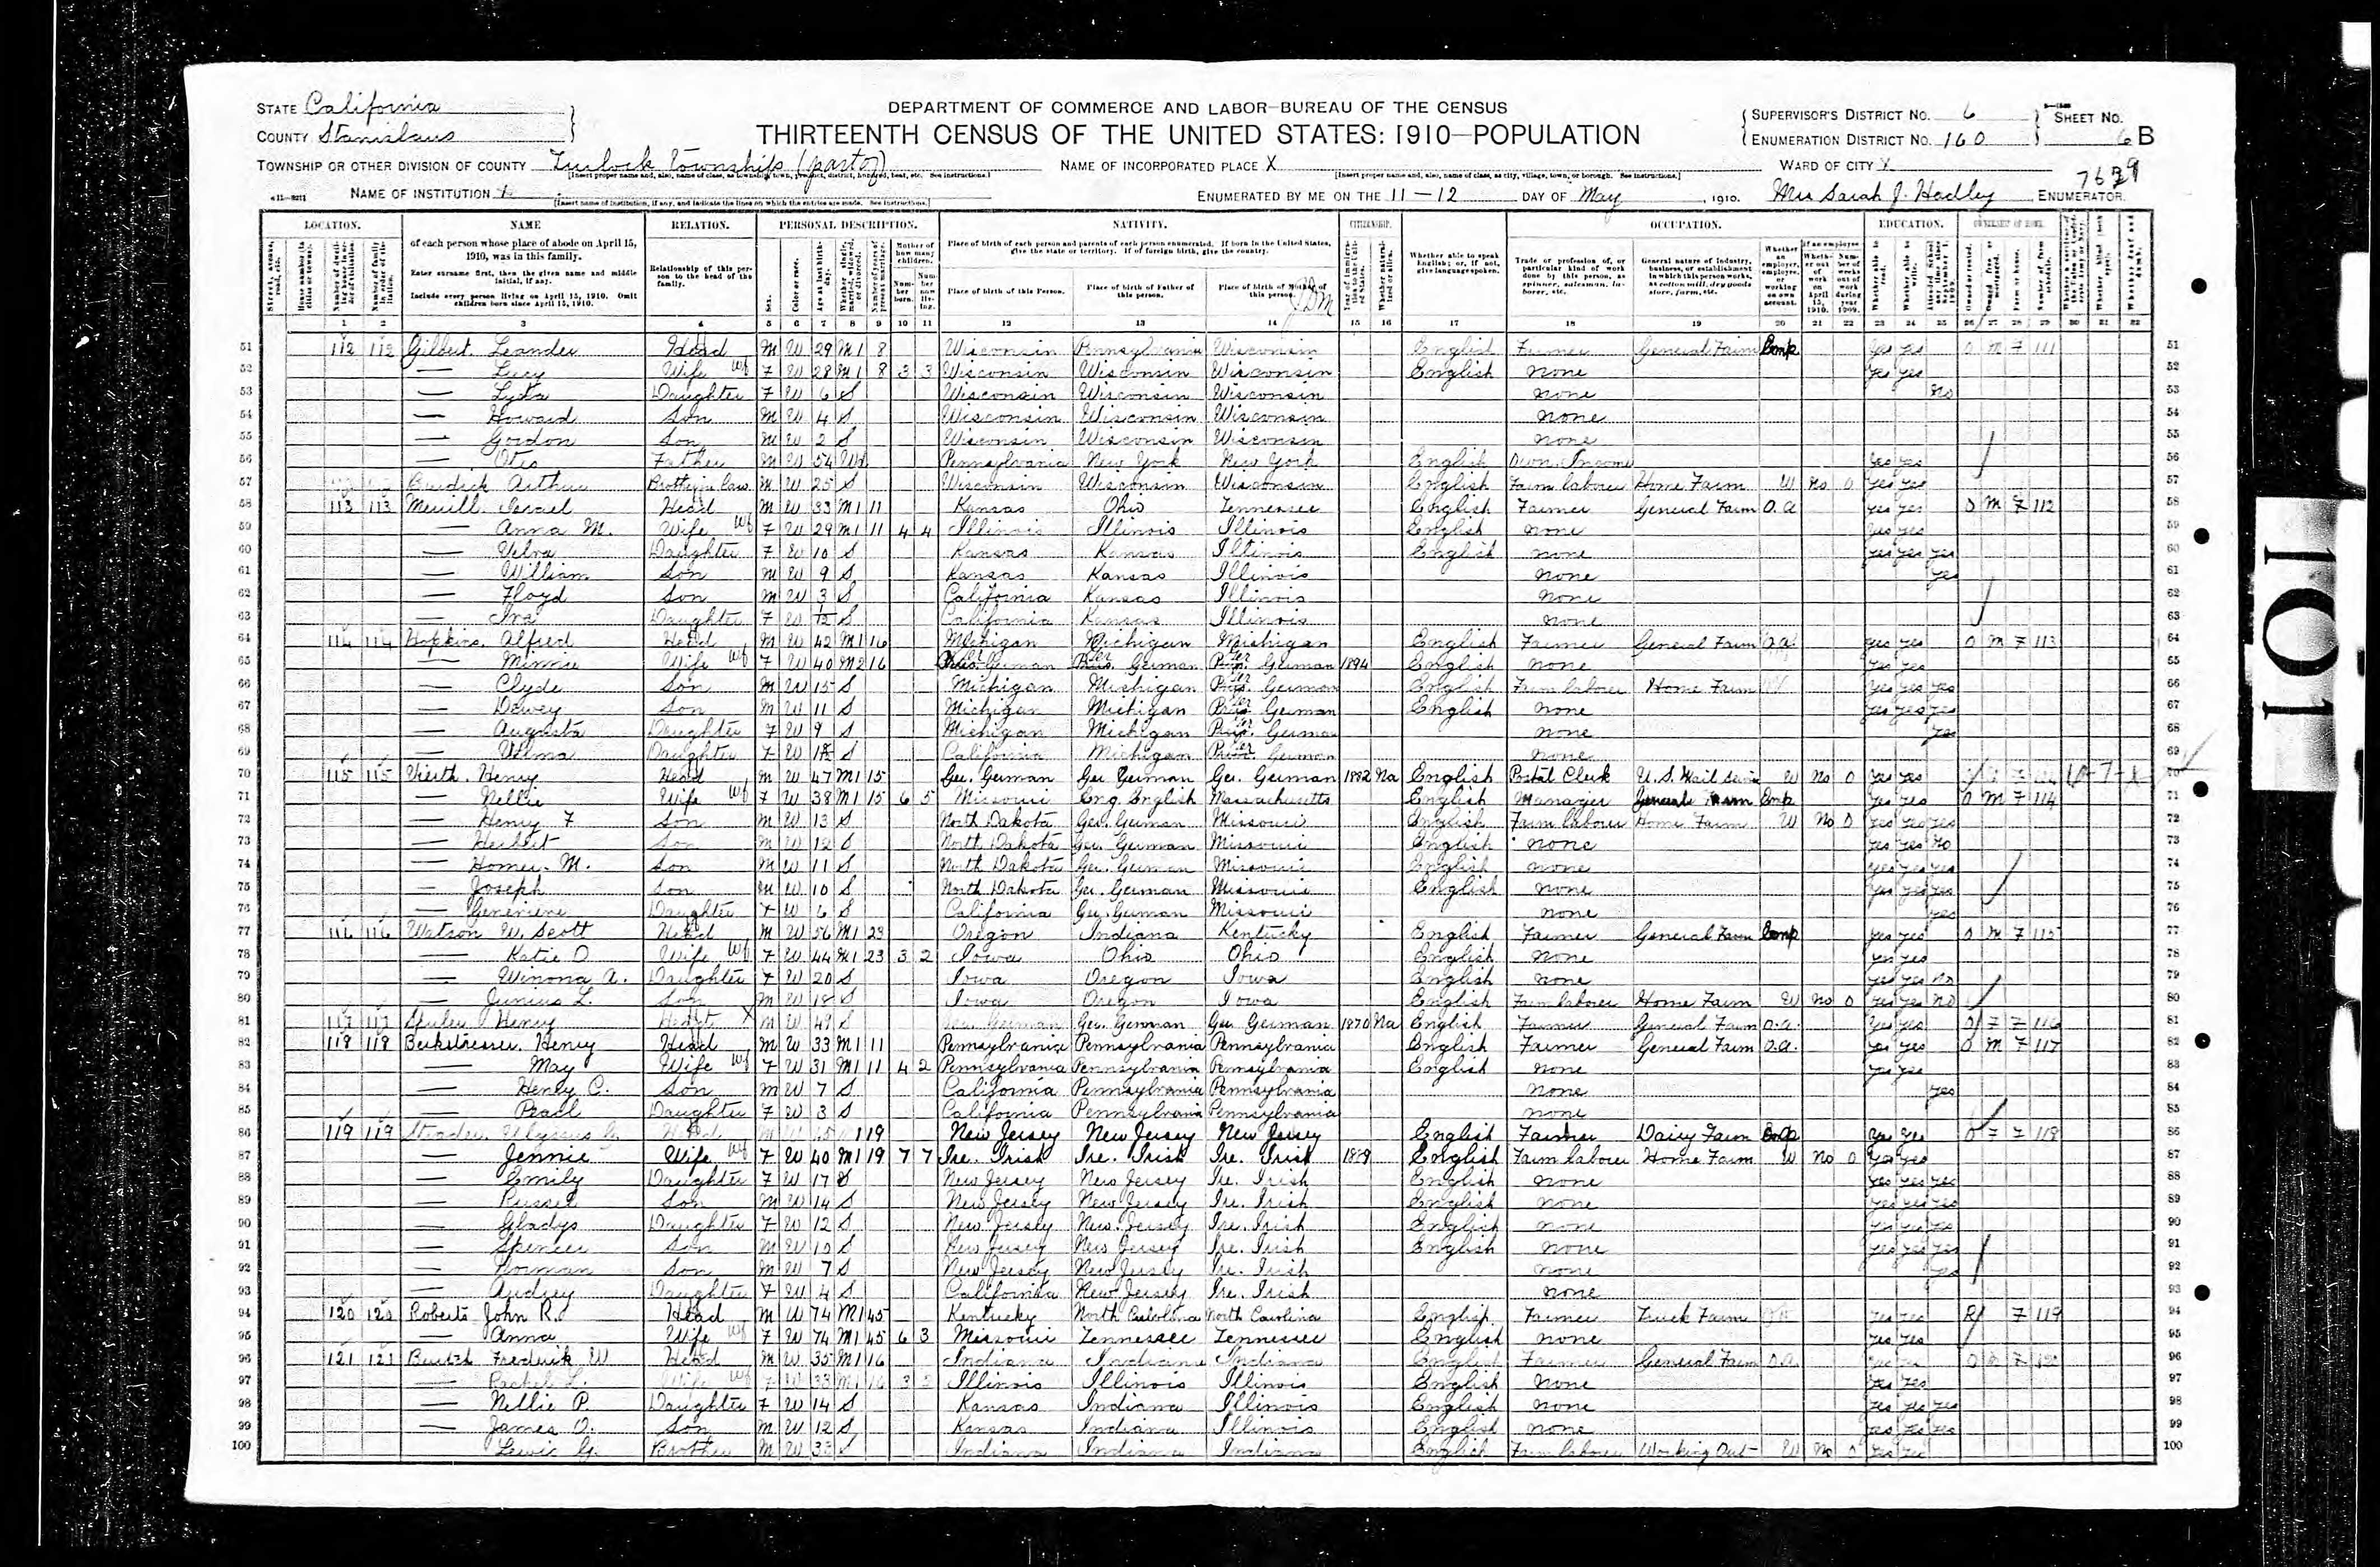 STATE California
COUNTY Stanislaus
DEPARTMENT OF COMMERCE AND LABOR—BUREAU OF THE CENSUS
THIRTEENTH CENSUS OF THE UNITED STATES: 1910—POPULATION
SUPERVISOR'S DISTRICT NO. 6
ENUMERATION DISTRICT NO. 160
SHEET NO. 6 B
TOWNSHIP OR OTHER DIVISION OF COUNTY Turlock Townships (part of)
NAME OF INCORPORATED PLACE X
WARD OF CITY X
7639
NAME OF INSTITUTION X
ENUMERATED BY ME ON THE 11-12 DAY OF May, 1910. Mrs Sarah J. Hadley, ENUMERATOR.
LOCATION. NAME RELATION. PERSONAL DESCRIPTION. NATIVITY. CITIZENSHIP. OCCUPATION. EDUCATION. OWNERSHIP OF HOME.
of each person whose place of abode on April 15, 1910, was in this family.
Enter surname first, then the given name and middle initial, if any.
Include every person living on April 15, 1910. Omit children born since April 15, 1910.
Relationship of this person to the head of the family.
Place of birth of each person and parents of each person enumerated. If born in the United States, give the state or territory. If of foreign birth, give the country.
Place of birth of this Person. Place of birth of Father of this person. Place of birth of Mother of this person.
Whether able to speak English; or, if not, give language spoken.
1 2 3 4 5 6 7 8 9 10 11 12 13 14 15 16 17 18 19 20 21 22 23 24 25 26 27 28 29 30 31 32
51 112 112 Gilbert Leander Head M W 29 M1 8 Wisconsin Pennsylvania Wisconsin English Farmer General Farm Emp yes yes O M F 111
52 — Lucy Wife F W 28 M1 8 3 3 Wisconsin Wisconsin Wisconsin English None yes yes
53 — Daughter F W 6 S Wisconsin Wisconsin Wisconsin None no
54 — Howard Son M W 4 S Wisconsin Wisconsin Wisconsin None
55 — Gordon Son M W 2 S Wisconsin Wisconsin Wisconsin None
56 — Otis Father M W 54 Wd Pennsylvania New York New York English Own Income yes yes
57 Burdick Arthur Brother in law M W 25 S Wisconsin Wisconsin Wisconsin English Farm laborer Home Farm W no 0 yes yes
58 113 113 Merrill Israel Head M W 33 M1 11 Kansas Ohio Tennessee English Farmer General Farm O.A. yes yes O M F 112
59 — Anna M. Wife F W 29 M1 11 4 4 Illinois Illinois Illinois English None yes yes
60 — Velva Daughter F W 10 S Kansas Kansas Illinois English None yes yes yes
61 — William Son M W 9 S Kansas Kansas Illinois None yes
62 — Floyd Son M W 3 S California Kansas Illinois None
63 — Iva Daughter F W S California Kansas Illinois None
64 114 114 Hopkins. Alfred Head M W 42 M1 16 Michigan Michigan Michigan English Farmer General Farm O.A. yes yes O M F 113
65 — Minnie Wife F W 40 M2 16 Ger. German Ger. German Ger. German 1894 English None yes yes
66 — Clyde Son M W 15 S Michigan Michigan Ger. German English Farm laborer Home Farm yes yes yes
67 — Dewey Son M W 11 S Michigan Michigan Ger. German English None yes yes yes
68 — Augusta Daughter F W 9 S Michigan Michigan Ger. German None yes
69 — Wilma Daughter F W S California Michigan Ger. German None
70 115 115 Vieth. Henry Head M W 47 M1 15 Ger. German Ger. German Ger. German 1882 Na English Postal Clerk U.S. Mail Service W No 0 yes yes
71 — Nellie Wife F W 38 M1 15 6 5 Missouri Eng. English Massachusetts English Manager General Farm Emp yes yes O M F 114
72 — Henry F Son M W 13 S North Dakota Ger. German Missouri English Farm laborer Home Farm W No 0 yes yes yes
73 — Herbert Son M W 12 S North Dakota Ger. German Missouri English none yes yes No
74 — Homer. M. Son M W 11 S North Dakota Ger. German Missouri English None yes yes yes
75 — Joseph Son M W 10 S North Dakota Ger. German Missouri English None yes yes yes
76 — Genevieve Daughter F W 6 S California Ger. German Missouri None yes
77 116 116 Watson W. Scott Head M W 56 M1 23 Oregon Indiana Kentucky English Farmer General Farm Emp yes yes O M F 115
78 — Katie O Wife F W 44 M1 23 3 2 Iowa Ohio Ohio English None yes yes
79 — Winona A. Daughter F W 20 S Iowa Oregon Iowa English None yes yes no
80 — Junius L. Son M W 18 S Iowa Oregon Iowa English Farm laborer Home Farm W no 0 yes yes no
81 117 117 Henry Head M W 49 S Ger. German Ger. German Ger. German 1870 Na English Farmer General Farm O.A. yes yes O F F 116
82 118 118 Beckstresser. Henry Head M W 33 M1 11 Pennsylvania Pennsylvania Pennsylvania English Farmer General Farm O.A. yes yes O M F 117
83 — May Wife F W 31 M1 11 4 2 Pennsylvania Pennsylvania Pennsylvania English None yes yes
84 — Henry C. Son M W 7 S California Pennsylvania Pennsylvania None yes
85 — Pearl Daughter F W 3 S California Pennsylvania Pennsylvania None
86 119 119 Ulysses G. Head M W 45 M1 19 New Jersey New Jersey New Jersey English Farmer Dairy Farm Emp yes yes O F F 118
87 — Jennie Wife F W 40 M1 19 7 7 Ire. Irish Ire. Irish Ire. Irish English Farm laborer Home Farm W No 0 yes yes
88 — Emily Daughter F W 17 S New Jersey New Jersey Ire. Irish English None yes yes yes
89 — Russel Son M W 14 S New Jersey New Jersey Ire. Irish English None yes yes yes
90 — Gladys Daughter F W 12 S New Jersey New Jersey Ire. Irish English None yes yes yes
91 — Spencer Son M W 10 S New Jersey New Jersey Ire. Irish English None yes yes yes
92 — Norman Son M W 7 S New Jersey New Jersey Ire. Irish None yes
93 — Audrey Daughter F W 4 S California New Jersey Ire. Irish None
94 120 120 Roberts John R. Head M W 74 M1 45 Kentucky North Carolina North Carolina English Farmer Truck Farm yes yes R F 119
95 — Anna Wife F W 74 M1 45 6 3 Missouri Tennessee Tennessee English None yes yes
96 121 121 Fredrick W Head M W 35 M1 16 Indiana Indiana Indiana English Farmer General Farm O.A. O F 120
97 — Rachel Wife F W 33 M1 16 3 Illinois Illinois Illinois English None yes yes
98 — Nellie P. Daughter F W 14 S Kansas Indiana Illinois English None yes yes yes
99 — James O. Son M W 12 S Kansas Indiana Illinois English None yes yes yes
100 Lewis G. Brother M W 33 S Indiana Indiana Indiana English Farm laborer Working Out W No 0 yes yes
101